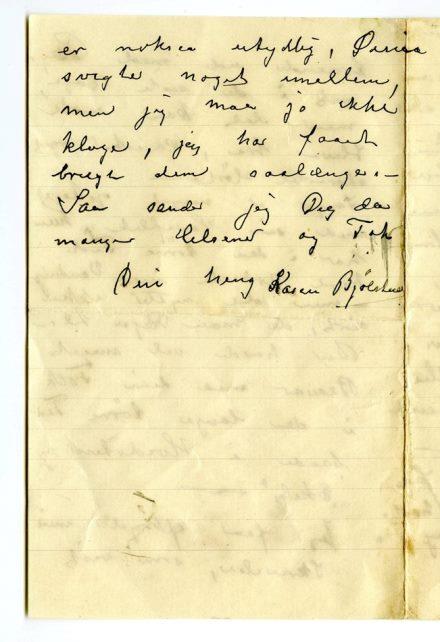 er noksaa utydlig, Øinene
svigte noget imellem,
men jeg maa jo ikke
klage, jeg har faaet
brugt dem saalænge. –
Saa sender jeg Dig da
mange Hilsener og Tak
Din heng Karen Bjølstad